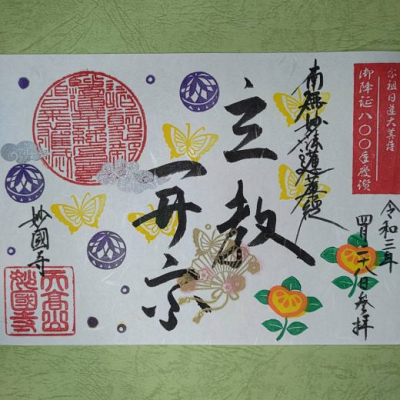 宗祖日蓮大菩薩
御降誕八〇〇年慶讃
令和三年
四月二八日参拝
南無妙法蓮華経
立教
開宗
妙國寺
天高山
妙國寺